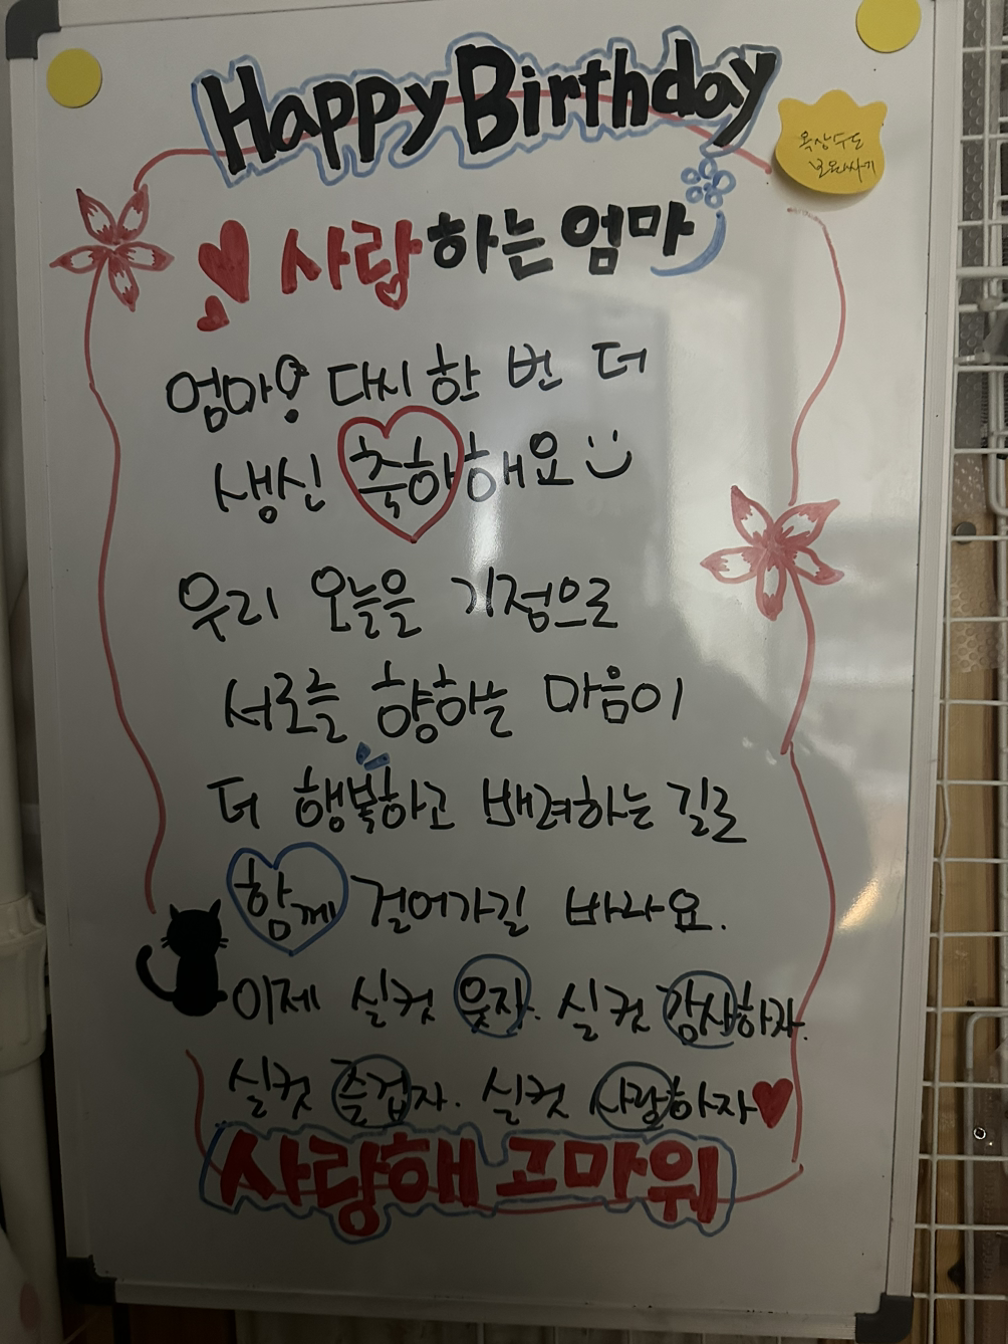 Happy Birthday
옥상수도
보온싸기
사랑하는 엄마
엄마! 다시 한 번 더
생신 축하해요
우리 오늘을 기점으로
서로를 향하는 마음이
더 행복하고 배려하는 길로
함께 걸어가길 바라요.
이제 실컷 웃자. 실컷 감사하자.
실컷 즐겁자. 실컷 사랑하자
사랑해 고마워